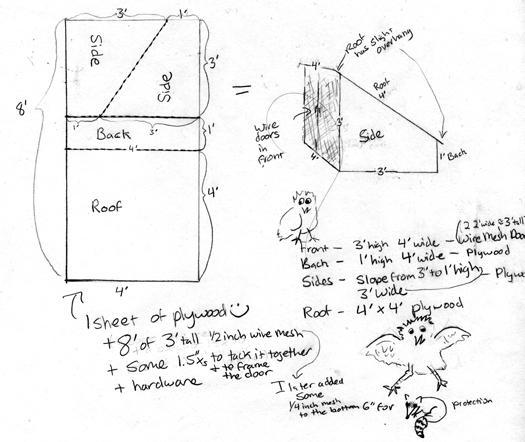 3'
1'
Side
Side
3'
8'
1'
3'
Back
1'
4'
Roof
4'
4'
=
Roof
has slight
overhang
4'
Roof
4'
Wire
doors
in
front
3'
Side
1' Back
4'
3'
Front – 3' high 4' wide – wire mesh Door
(2 2' wide 3' tall
Back – 1' high 4' wide – Plywood
Sides – Slope from 3' to 1' high
3' wide
Roof – 4' x 4' plywood
1 sheet of plywood
+ 8' of 3' tall 1/2 inch wire mesh
+ Some 1.5"xs to tack it together
+ to frame
the door
+ hardware
I later added
Some
1/4 inch mesh
to the bottom 6" for
protection